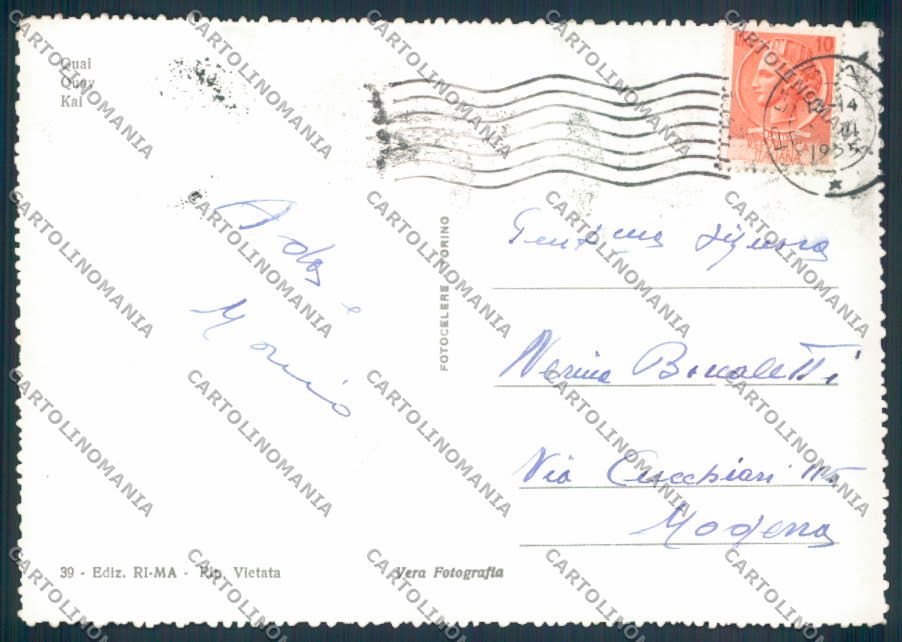 Quai
Quay
Kai
10
14
1955
ITALIANA
Ada e
Mario
FOTOCELERE TORINO
Gent.ma Signora
Nerina
Via Cucchiari 115
Modena
39 - Ediz. RI-MA - Rip. Vietata
Vera Fotografia
CARTOLINOMANIA